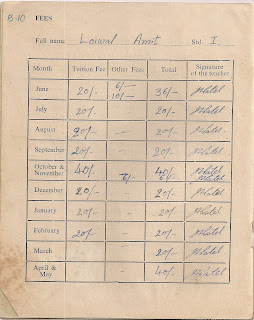 B-10 FEES
Full name Loiwal Amit Std I.
Month Tuition Fee Other Fees Total Signature of the teacher
June 20/- 6/- 10/- 36/- JBhatel
July 20/- - 20/- JBhatel
August 20/- - 20/- JBhatel
September 20/- - 20/- JBhatel
October & November 40/- 6/- 40/- 6/- JBhatel JBhatel
December 20/- 20/- JBhatel
January 20/- - 20/- JBhatel
February 20/- - 20/- JBhatel
March - 20/- JBhatel
April & May - 40/- JBhatel